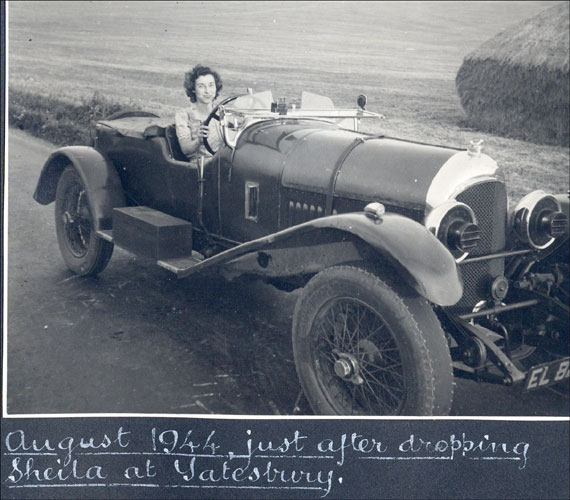 EL 8
August 1944, just after dropping
Sheila at Yatesbury.